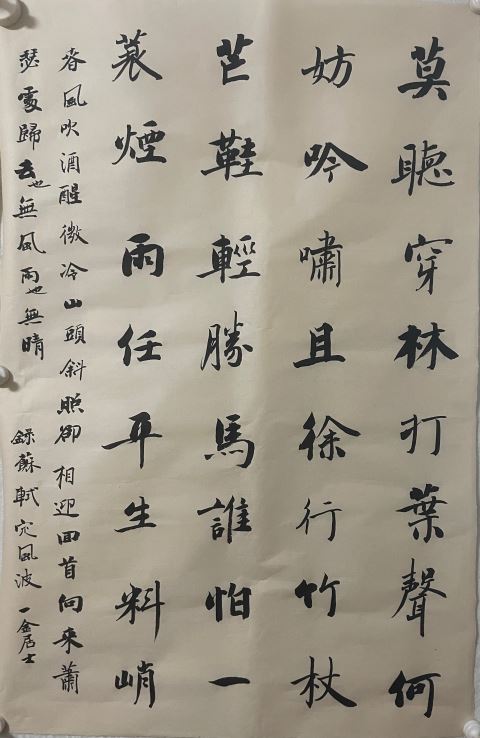 莫聽穿林打葉聲何
妨吟嘯且徐行竹杖
芒鞋輕勝馬誰怕一
蓑煙雨任平生料峭
春風吹酒醒微冷山頭斜照卻相迎回首向來蕭
瑟處歸去也無風雨也無晴
錄蘇軾定風波 一金居士